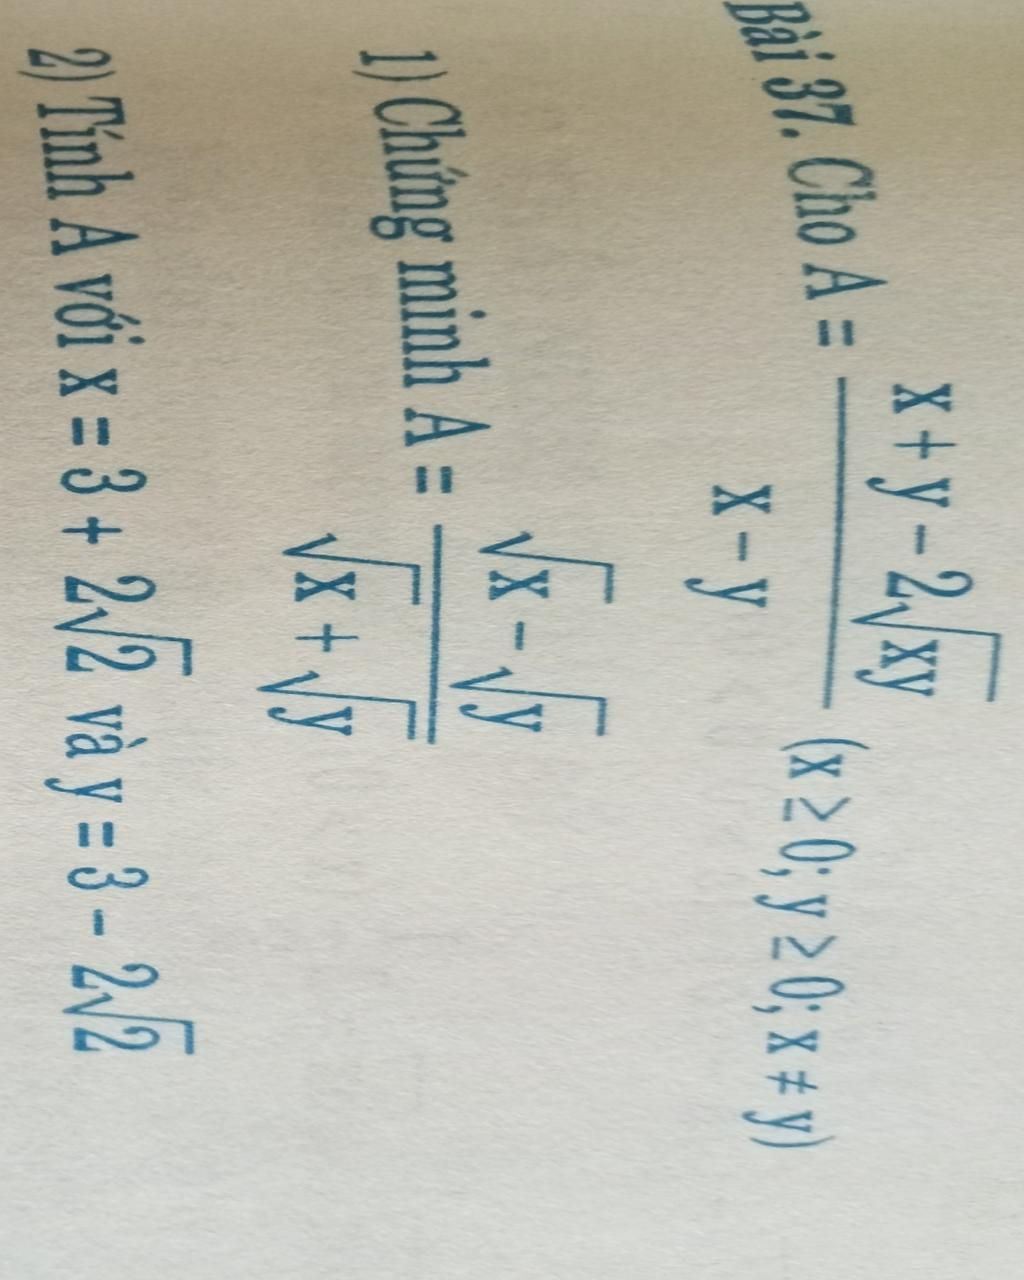 Bài 37. Cho A = \frac{x + y - 2\sqrt{xy}}{x - y} (x ≥ 0; y ≥ 0; x ≠ y)
1) Chứng minh A = \frac{\sqrt{x} - \sqrt{y}}{\sqrt{x} + \sqrt{y}}
2) Tính A với x = 3 + 2\sqrt{2} và y = 3 - 2\sqrt{2}